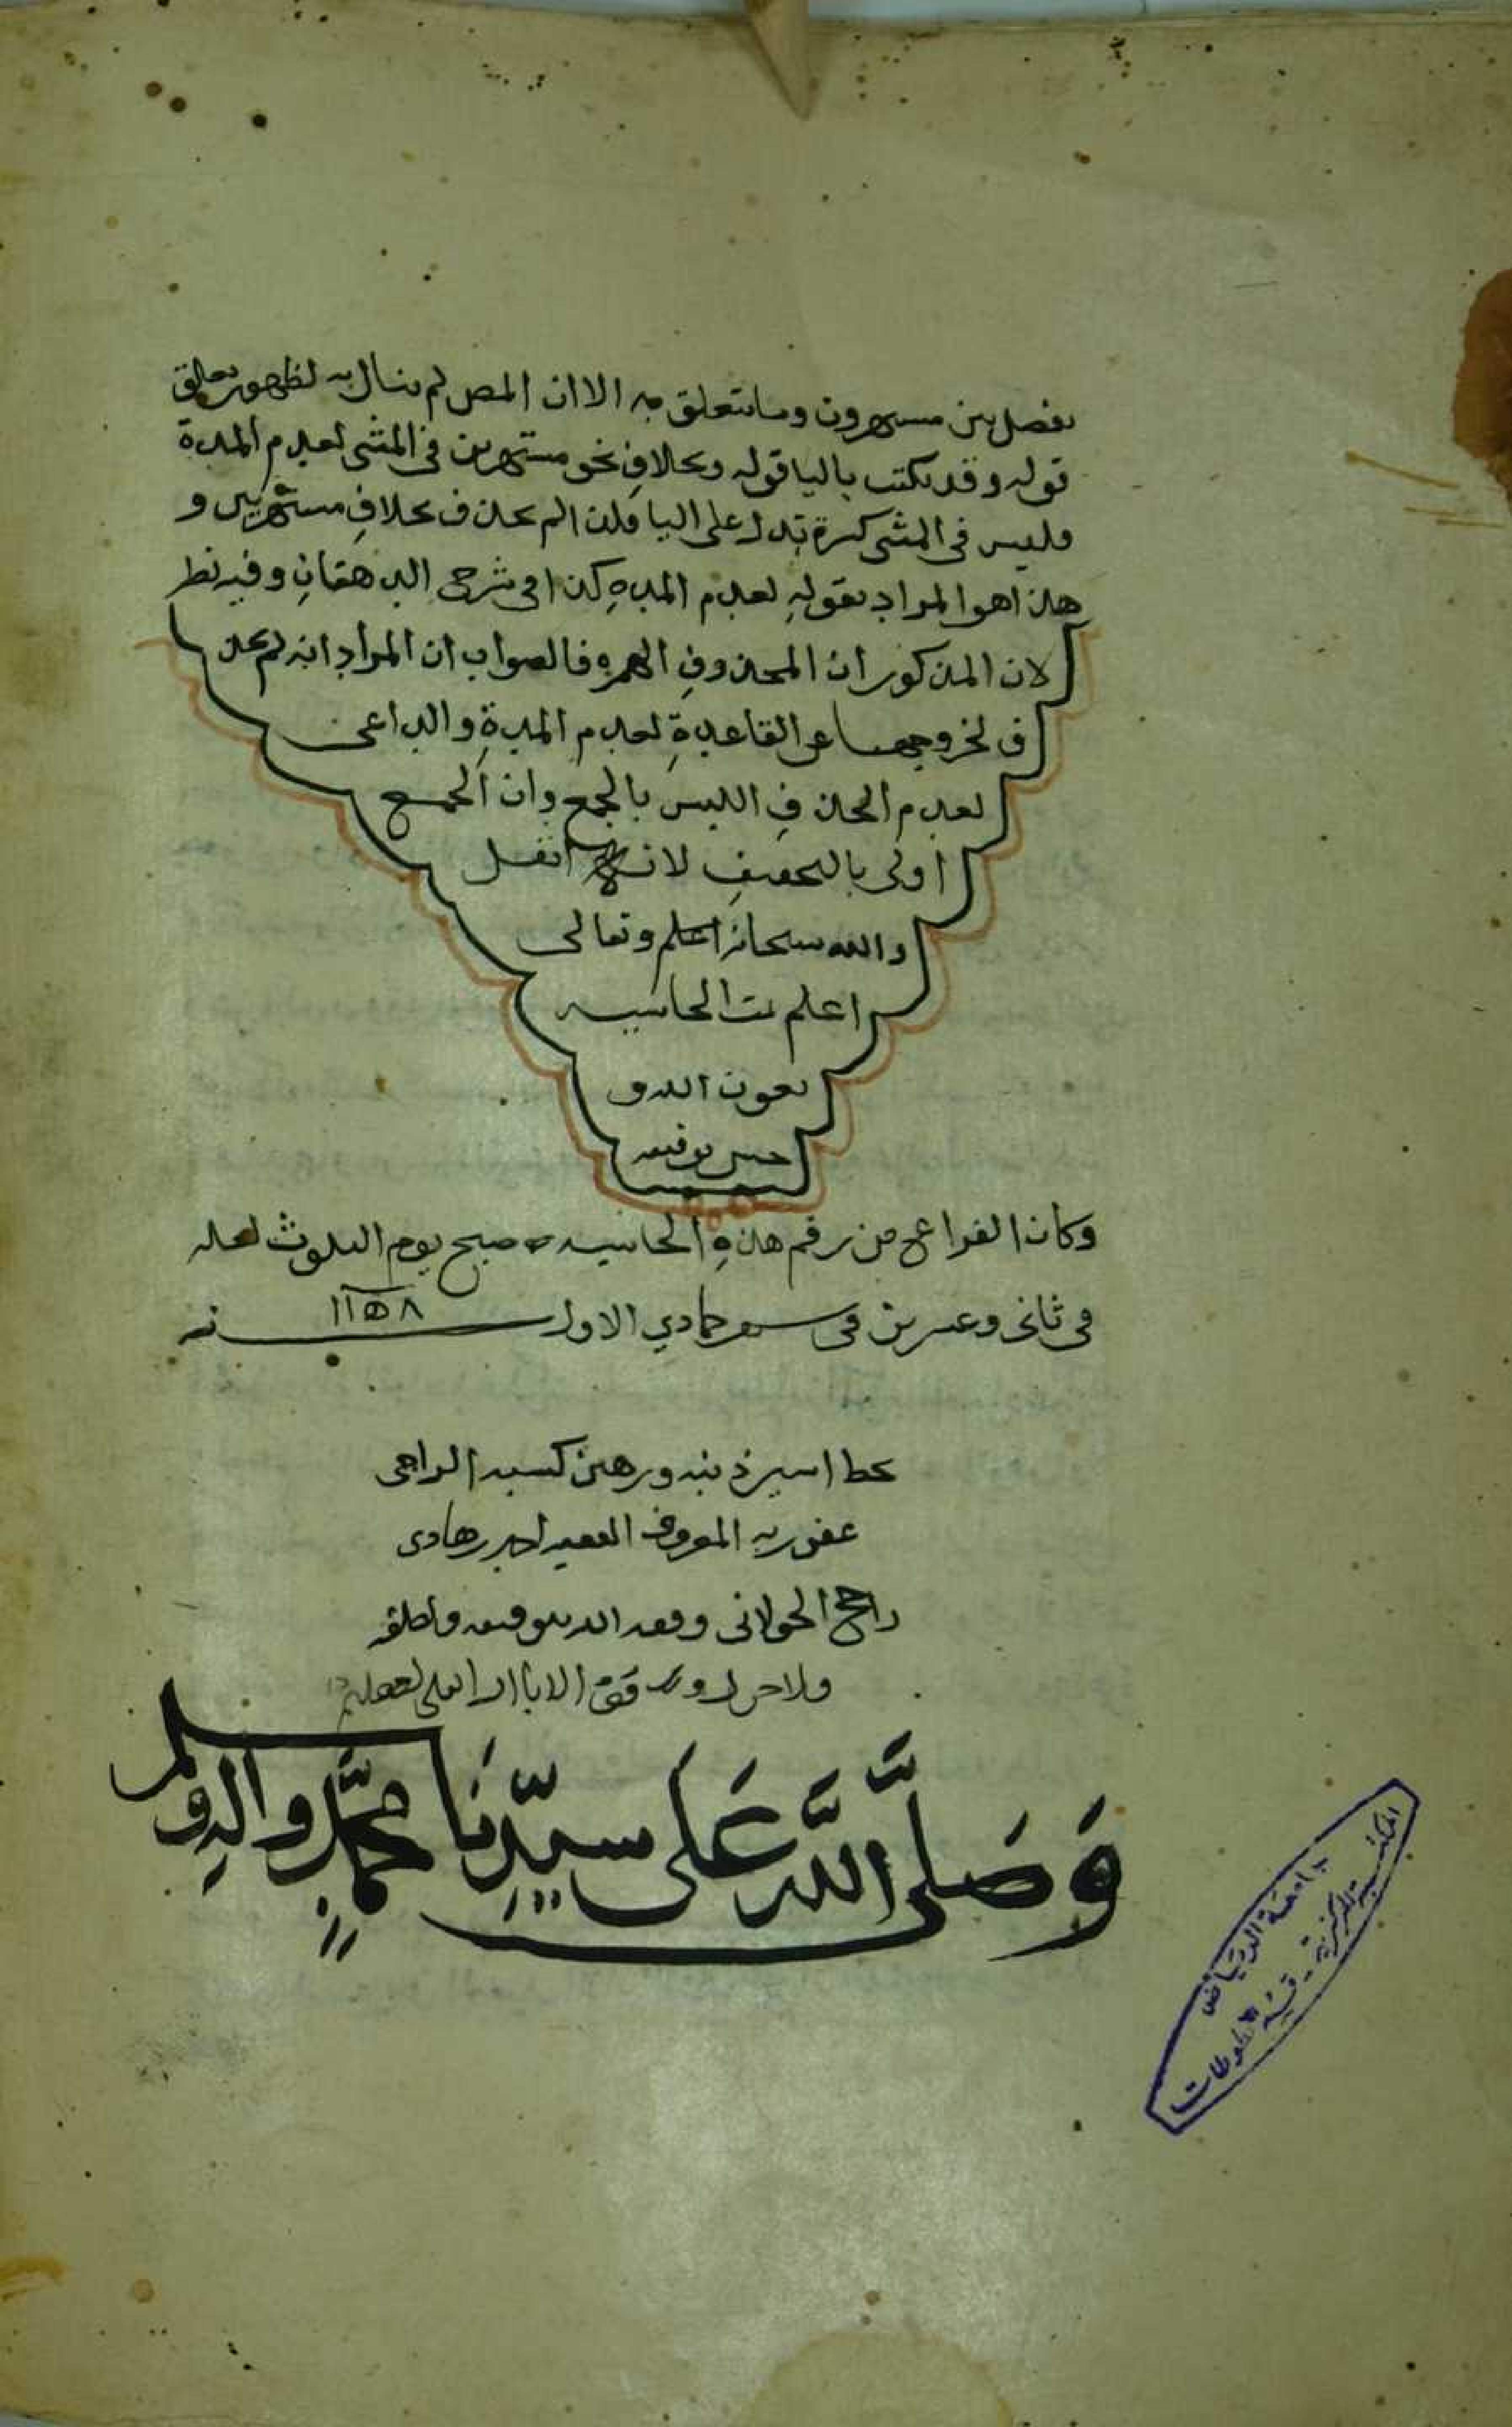 يفصل بين مستهزون وما يتعلق به الا ان المص لم يبال به لظهور تعلق
قوله وقد يكتب باليا قوله وبخلاف نحو مستهزين في المثنى لعدم المدة
وليس في المثنى كسرة تدل على اليا فلذا لم يحذف بخلاف مستهزيين و
هذا هو المراد بقوله لعدم المدة كذا في شرح الدهقان وفيه نظر
لان المذكور ان المحذوف الهمزه فالصواب ان المراد انه لم يحذ
ف لخروجهما عن القاعدة لعدم المدة والداعى
لعدم الحذف اللبس بالجمع وان الجمع
اولى بالتخفيف لانه اثقل
والله سبحانه اعلم وتعالى
اعلم تمت الحاشيه
بعون الله و
حسن توفيقه
وكان الفراغ من رقم هذه الحاشيه صبح يوم الثلوث لعله
في ثانى وعشرين في شهر جمادي الاول سنه ١١٥٨
بخط اسير ذنبه ورهين كسبه الراجى
عفو ربه المعروف الفقير احمد هادى
راجح الخولانى وفقه الله بتوفيقه
ولا حول ولا قوة الا بالله العلي العظيم
وَصَلَّى اللَّه عَلَى سيِّدِنَا مُحَمَّدٍ وآله وسلم
جامعة الرياض
المكتبة المركزية - قسم المخطوطات